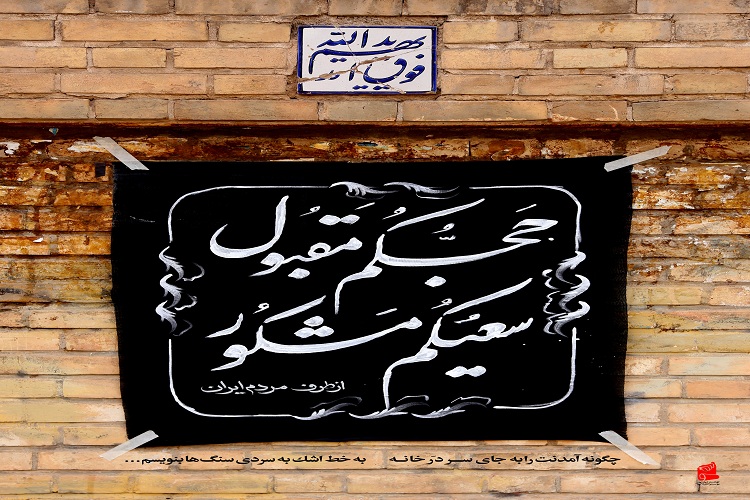 يدالله
فوق ايديهم
حَجُّكُم مَقبُول
سَعیُکُم مَشکُور
از طرف مردم ایران
چگونه آمدنت را به جای سر در خانه به خط اشک به سردی سنگ‌ها بنویسم...